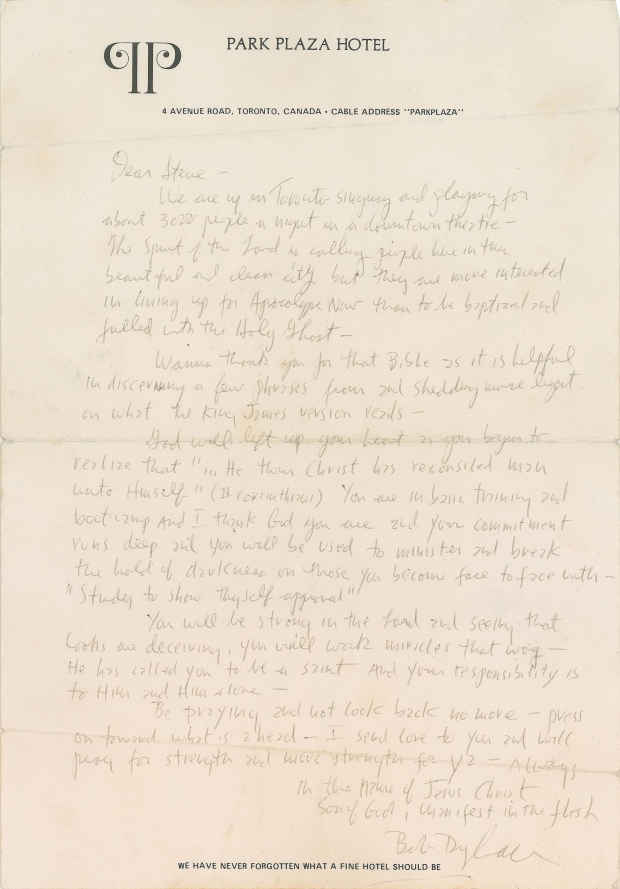 PARK PLAZA HOTEL
4 AVENUE ROAD, TORONTO, CANADA • CABLE ADDRESS "PARKPLAZA"
Dear Steve —
We are up in Toronto singing and playing for
about 3000 people a night in a downtown theatre —
The Spirit of the Lord is calling people here in this
beautiful and clean city but they are more interested
in lining up for Apocalypse Now than to be baptized and
filled with the Holy Ghost —
Wanna thank you for that Bible as it is helpful
in discerning a few phrases from and shedding more light
on what the King James version reads —
God will lift up your heart as you begin to
realize that "in He thru Christ has reconsiled man
unto Himself" (II Corinthians) You are in basic training and
bootcamp And I thank God you are and your commitment
runs deep and you will be used to minister and break
the hold of darkness on those you become face to face with —
"Study to show thyself approval"
You will be strong in the Lord and seeing that
looks are deceiving, you will work miracles that way —
He has called you to be a saint And your responsibility is
to Him and Him alone —
Be praying and not look back no more — press
on toward what is ahead — I send love to you and will
pray for strength and more strength for ya — Always
in the Name of Jesus Christ
Son of God, manifest in the flesh
Bob Dylan
WE HAVE NEVER FORGOTTEN WHAT A FINE HOTEL SHOULD BE